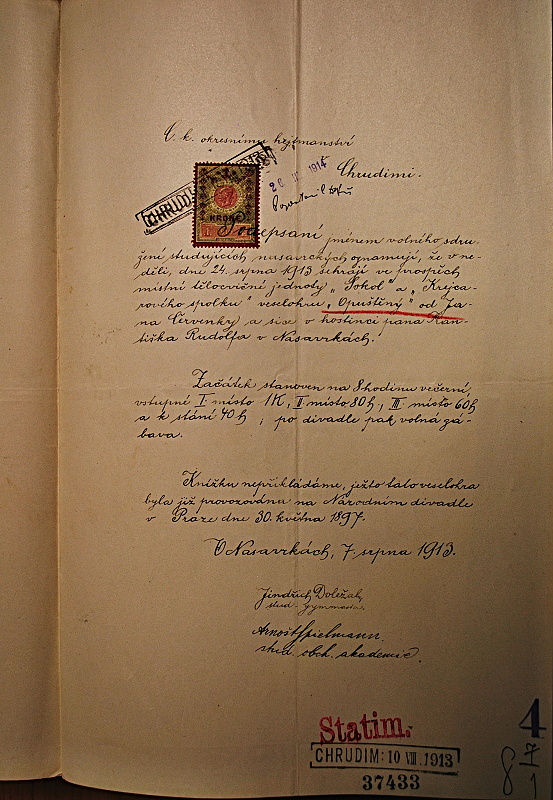 C. k. okresnímu hejtmanství
v Chrudimi.
CHRUDIM
KRONE
1
Podepsaní jménem volného sdru-
žení studujících nasavrckých oznamují, že v ne-
děli, dne 24. srpna 1913 sehrají ve prospěch
místní tělocvičné jednoty „Sokol" a „Krejca-
rového spolku" veselohru „Opuštěný" od Ja-
na Červenky a sice v hostinci pana Fran-
tiška Rudolfa v Nasavrkách.
Začátek stanoven na 8 hodinu večerní,
vstupné I místo 1K, II místo 80h, III místo 60h
a k stání 40h; po divadle pak volná zá-
bava.
Knížku nepřikládáme, ježto tato veselohra
byla již provozována na Národním divadle
v Praze dne 30. května 1897.
V Nasavrkách, 7. srpna 1913.
Jindřich Doležal,
stud. gymnasia.
Arnošt Spielmann.
stud. obch. akademie.
Statim.
CHRUDIM: 10 VIII. 1913
37433
4
8 7/1